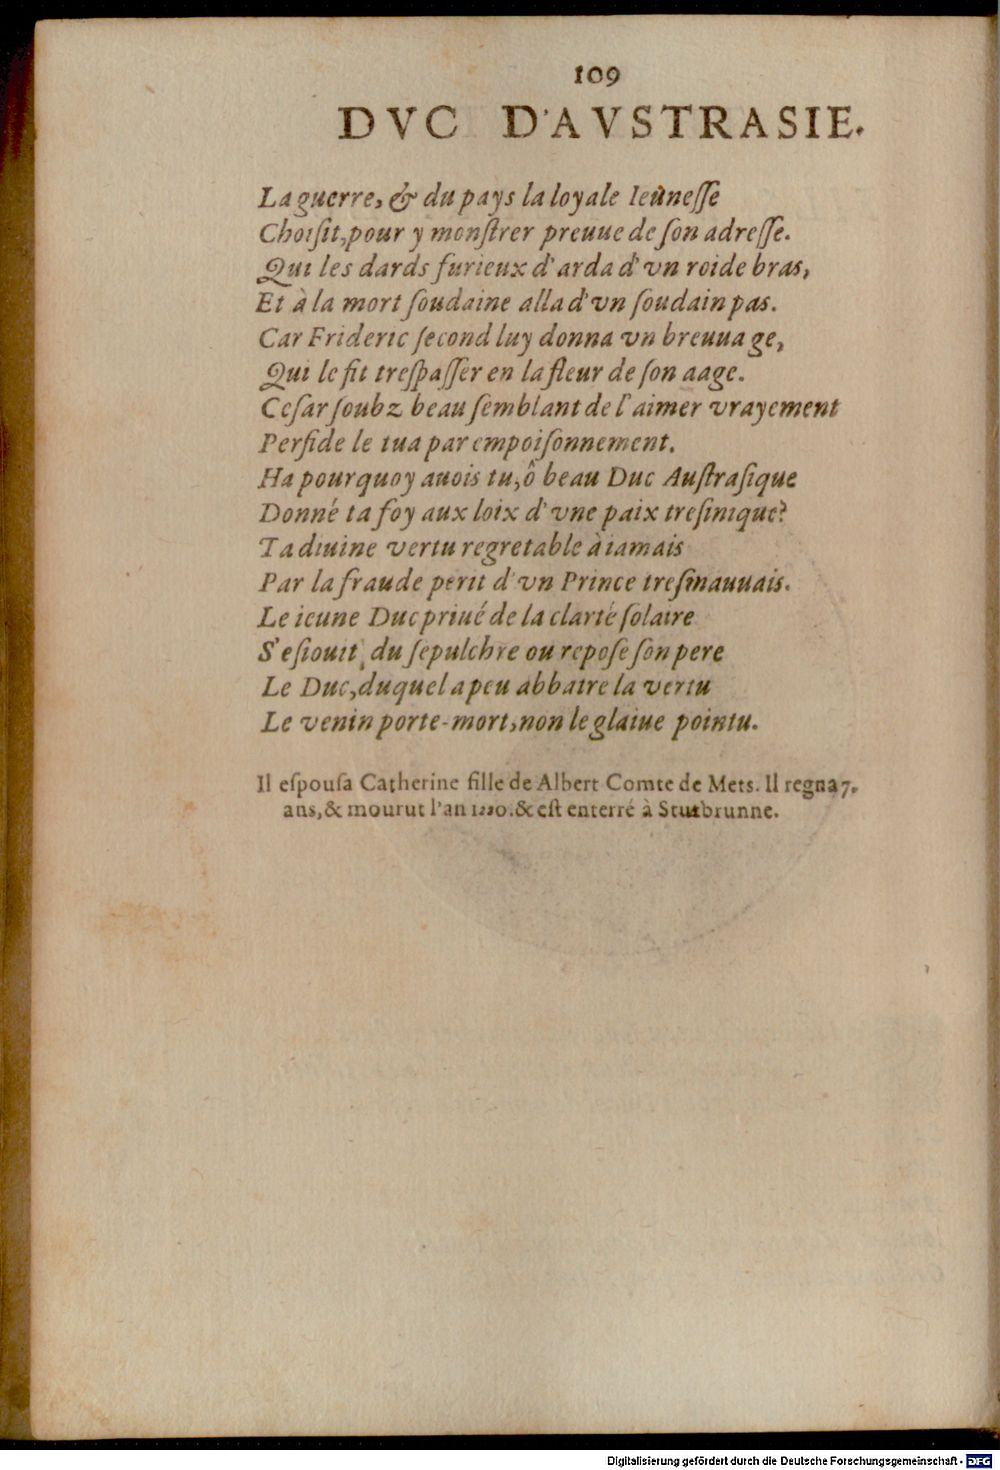 109
DVC D'AVSTRASIE.
La guerre, & du pays la loyale Ieûneſſe
Choiſit, pour y monſtrer preuue de ſon adreſſe.
Qui les dards furieux d'arda d'vn roide bras,
Et à la mort ſoudaine alla d'vn ſoudain pas.
Car Frideric ſecond luy donna vn breuuage,
Qui le fit treſpaſſer en la fleur de ſon aage.
Ceſar ſoubz beau ſemblant de l'aimer vrayement
Perfide le tua par empoiſonnement.
Ha pourquoy auois tu, ô beau Duc Auſtraſique
Donné ta foy aux loix d'vne paix treſinique?
Ta diuine vertu regretable à iamais
Par la fraude perit d'vn Prince treſmauuais.
Le ieune Duc priué de la clarté ſolaire
S'eſiouit du ſepulchre ou repoſe ſon pere
Le Duc, duquel a peu abbatre la vertu
Le venin porte-mort, non le glaiue pointu.
Il eſpouſa Catherine fille de Albert Comte de Mets. Il regna 7.
ans, & mourut l'an 1220. & eſt enterré à Stutbrunne.
Digitalisierung gefördert durch die Deutsche Forschungsgemeinschaft - DFG